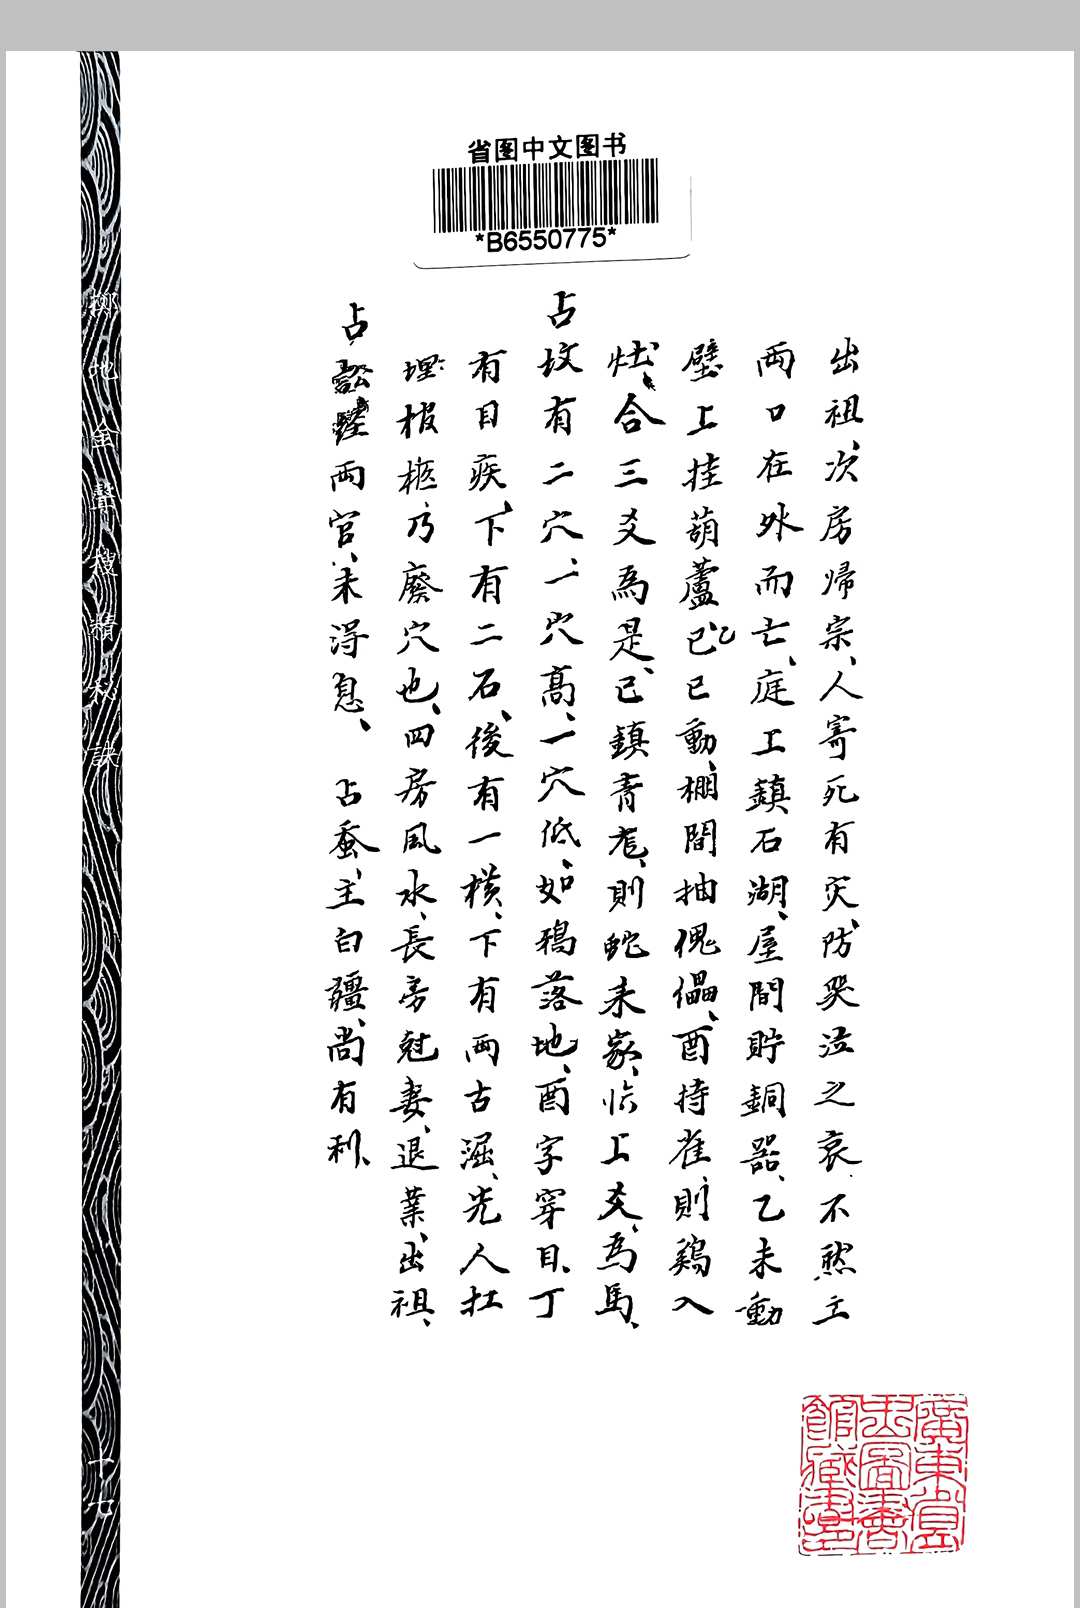 省图中文图书
*B6550775*
出祖、次房帰宗、人寄死有灾、防哭泣之哀.不然主
两口在外而亡、庭工鎮石湖、屋間貯銅器、乙未動
壁上挂葫蘆、己乙巳動、棚間抽傀儡、酉持雀、則鷄入
灶、合三爻為是、已鎮青竜、則蛇未家、临上爻、為馬、
占坟有二穴、一穴高、一穴低、如鴉落地、酉字穿目、丁
有目疾、下有二石、後有一横、下有两古漏、先人扛
埋棺柩乃廢穴也、四房風水、長房尅妻、退業、出祖、
占訟 两官、未得息、 占蚕、主、白疆、尚有利、
擲地金聲搜精秘訣
十七
廣東省立圖書館藏書